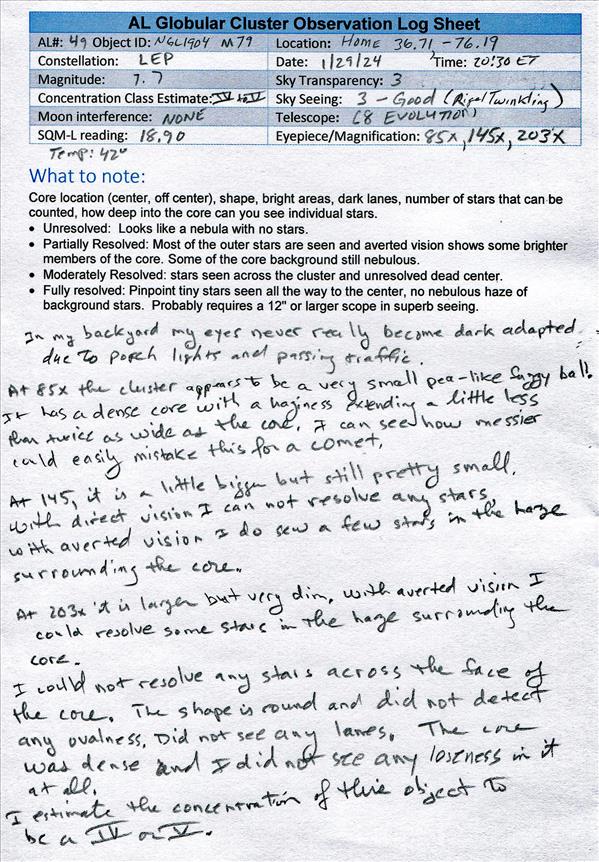 AL Globular Cluster Observation Log Sheet
AL#: 49 Object ID: NGC1904 M79 Location: Home 36.71, -76.19
Constellation: LEP Date: 1/29/24 Time: 20:30 ET
Magnitude: 7.7 Sky Transparency: 3
Concentration Class Estimate: IV to V Sky Seeing: 3 - Good (Rigel Twinkling)
Moon interference: NONE Telescope: C8 EVOLUTION
SQM-L reading: 18.90 Eyepiece/Magnification: 85x, 145x, 203x
Temp: 42°
What to note:
Core location (center, off center), shape, bright areas, dark lanes, number of stars that can be
counted, how deep into the core can you see individual stars.
• Unresolved: Looks like a nebula with no stars.
• Partially Resolved: Most of the outer stars are seen and averted vision shows some brighter
members of the core. Some of the core background still nebulous.
• Moderately Resolved: stars seen across the cluster and unresolved dead center.
• Fully resolved: Pinpoint tiny stars seen all the way to the center, no nebulous haze of
background stars. Probably requires a 12" or larger scope in superb seeing.
In my backyard my eyes never really become dark adapted
due to porch lights and passing traffic.
At 85x the cluster appears to be a very small pea-like fuzzy ball.
It has a dense core with a haziness extending a little less
than twice as wide as the core. I can see how messier
could easily mistake this for a comet.
At 145, it is a little bigger but still pretty small.
with direct vision I can not resolve any stars.
with averted vision I do see a few stars in the haze
surrounding the core.
At 203x it is larger but very dim. with averted vision I
could resolve some stars in the haze surrounding the
core.
I could not resolve any stars across the face of
the core. The shape is round and did not detect
any ovalness. Did not see any lanes. The core
was dense and I did not see any loseness in it
at all.
I estimate the concentration of this object to
be a IV or V.